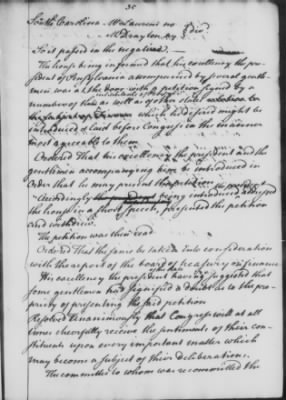 30
South Carolina Mr Laurens no
Mr Drayton ay } div:
So it passed in the negative.
The house being informed that his excellency the pre-
sident of Pensylvania accompanied by several gentle-
men was at the door with a petition signed by a
number of
which he desired might be
introduced & laid before Congress in the manner
most agreeable to them
Ordered That his excellency the president and the
gentlemen accompanying him be introduced in
Order that he may present the petition
Accordingly being introduced addressed
the house in a short speech, presented the petition
and withdrew.
The petition was then read
Ordered That the same be taken into consideration
with the report of the board of treasury on finance
His excellency the president having suggested that
some gentlemen had signified a doubt as to the pro-
priety of presenting the said petition
Resolved Unanimously that Congress will at all
times chearfully receive the sentiments of their con-
stituents upon every important matter which
may become a subject of their deliberations.
The committee to whom was recommitted the